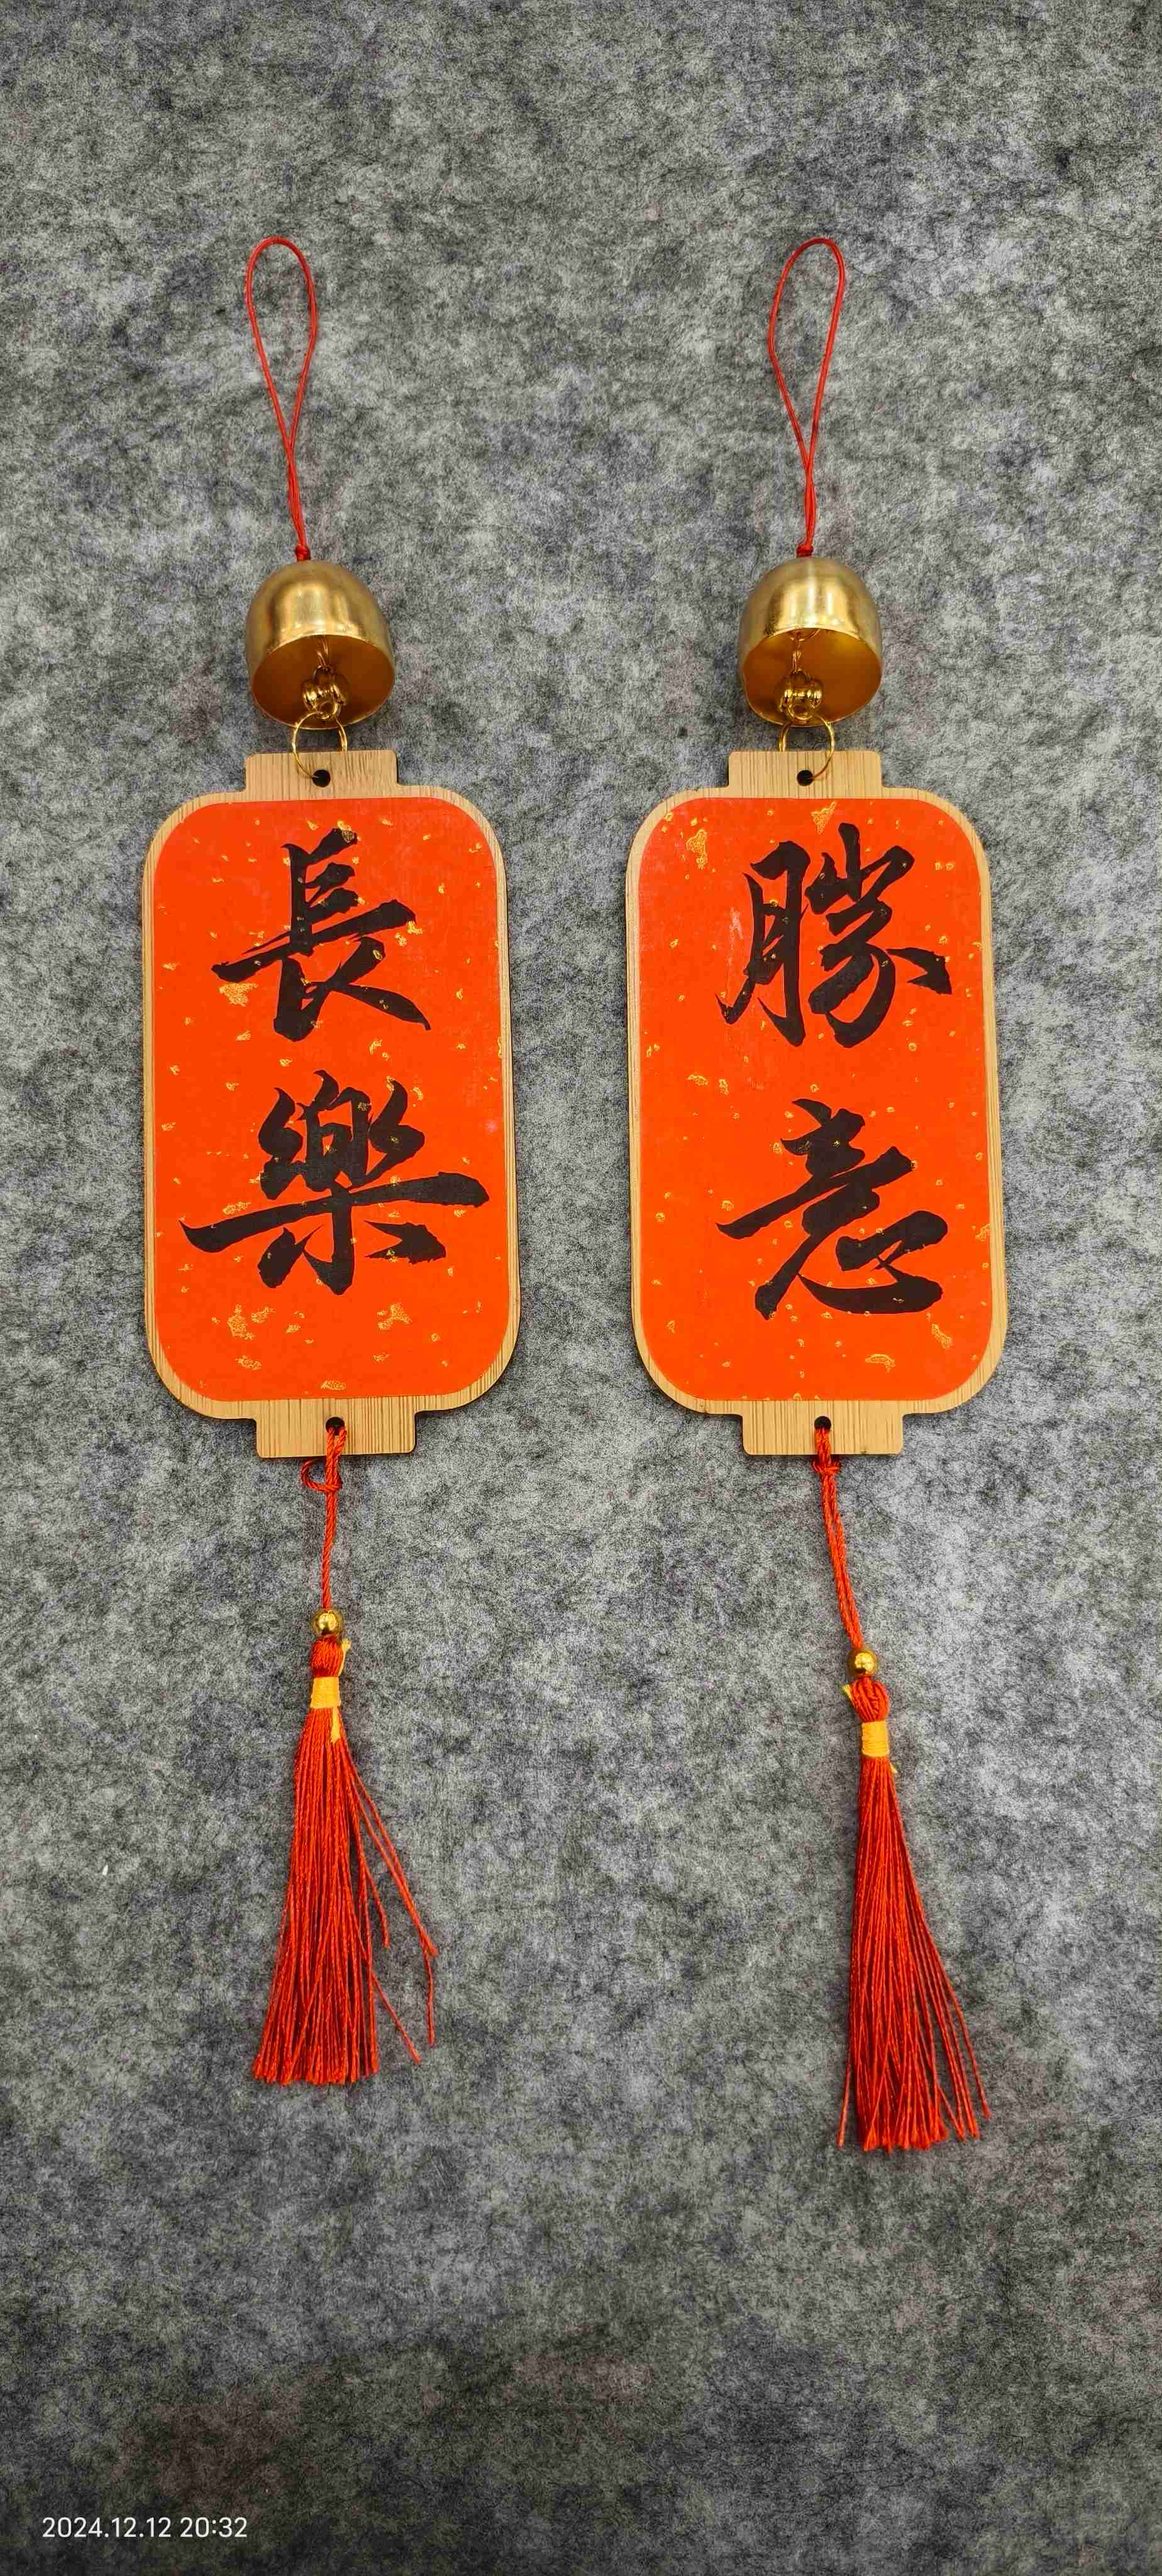 長樂
勝意
2024.12.12 20:32